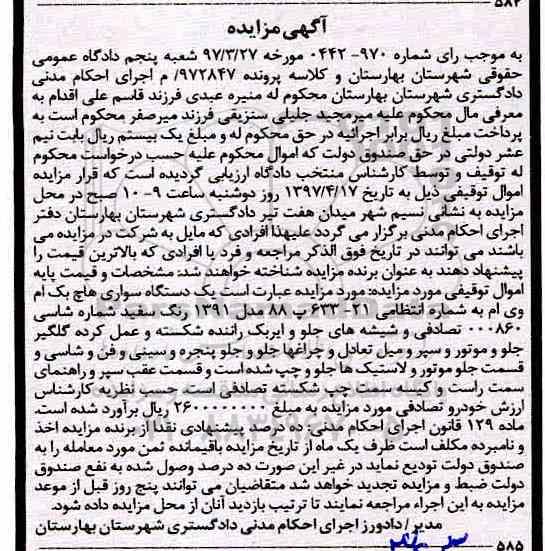 ۵۸۲
آگهی مزایده
به موجب رای شماره ۹۷۰- ۰۴۴۲ مورخه ۹۷/۳/۲۷ شعبه پنجم دادگاه عمومی
حقوقی شهرستان بهارستان و کلاسه پرونده ۹۷۲۸۴۷/ م اجرای احکام مدنی
دادگستری شهرستان بهارستان محکوم له منیره عبدی فرزند قاسم علی اقدام به
معرفی مال محکوم علیه میرمجید جلیلی سنزیقی فرزند میرصفر محکوم است به
پرداخت مبلغ ریال برابر اجرائیه در حق محکوم له و مبلغ یک بیستم ریال بابت نیم
عشر دولتی در حق صندوق دولت که اموال محکوم علیه حسب درخواست محکوم
له توقیف و توسط کارشناس منتخب دادگاه ارزیابی گردیده است که قرار مزایده
اموال توقیفی ذیل به تاریخ ۱۳۹۷/۴/۱۷ روز دوشنبه ساعت ۹- ۱۰ صبح در محل
مزایده به نشانی نسیم شهر میدان هفت تیر دادگستری شهرستان بهارستان دفتر
اجرای احکام مدنی برگزار می گردد علیهذا افرادی که مایل به شرکت در مزایده می
باشند می توانند در تاریخ فوق الذکر مراجعه و فرد یا افرادی که بالاترین قیمت را
پیشنهاد دهند به عنوان برنده مزایده شناخته خواهند شد: مشخصات و قیمت پایه
اموال توقیفی مورد مزایده: مورد مزایده عبارت است یک دستگاه سواری هاچ بک ام
وی ام به شماره انتظامی ۲۱- ۶۳۳ پ ۸۸ مدل ۱۳۹۱ رنگ سفید شماره شاسی
۰۰۰۸۶۰ تصادفی و شیشه های جلو و ایربک راننده شکسته و عمل کرده گلگیر
جلو و موتور و سپر و میل تعادل و چراغها جلو و جلو پنجره و سینی و فن و شاسی و
قسمت جلو موتور و لاستیک ها جلو و چپ شده است و قسمت عقب سپر و راهنمای
سمت راست و کیسه ست چپ شکسته تصادفی است حسب نظریه کارشناس
ارزش خودرو تصادفی مورد مزایده به مبلغ ۲۶۰۰۰۰۰۰۰ ریال برآورد شده است.
ماده ۱۲۹ قانون اجرای احکام مدنی: ده درصد پیشنهادی نقدا از برنده مزایده اخذ
و نامبرده مکلف است ظرف یک ماه از تاریخ مزایده باقیمانده ثمن مورد معامله را به
صندوق دولت تودیع نماید در غیر این صورت ده درصد وصول شده به نفع صندوق
دولت ضبط و مزایده تجدید خواهد شد متقاضیان می توانند پنج روز قبل از موعد
مزایده به این اجراء مراجعه نمایند تا ترتیب بازدید آنان از محل مزایده داده شود.
مدیر / دادورز اجرای احکام مدنی دادگستری شهرستان بهارستان
۵۸۵